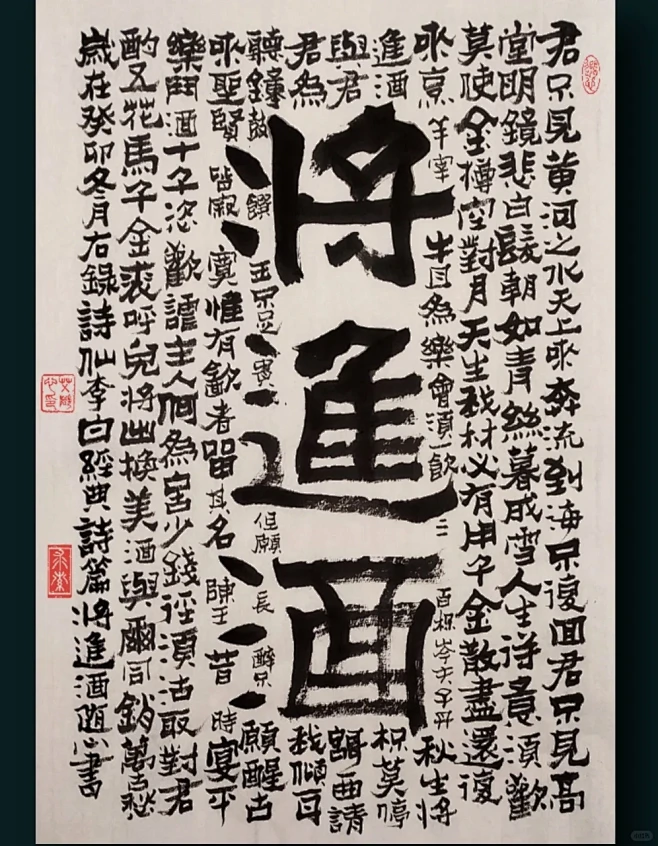 將進酒
君不見黃河之水天上來奔流到海不復回君不見高
堂明鏡悲白髮朝如青絲暮成雪人生得意須歡
莫使金樽空對月天生我材必有用千金散盡還復
來烹羊宰牛且為樂會須一飲三百杯岑夫子丹秋生將
進酒杯莫停
與君謌曲請
君為我傾耳
聽鐘鼓饌玉不足貴但願長醉不願醒古
來聖賢皆寂寞惟有飲者留其名陳王昔時宴平
樂鬥酒十千恣歡謔主人何為言少錢徑須沽取對君
酌五花馬千金裘呼兒將出換美酒與爾同銷萬古愁
歲在癸卯冬月右錄詩仙李白經典詩篇將進酒隨心書